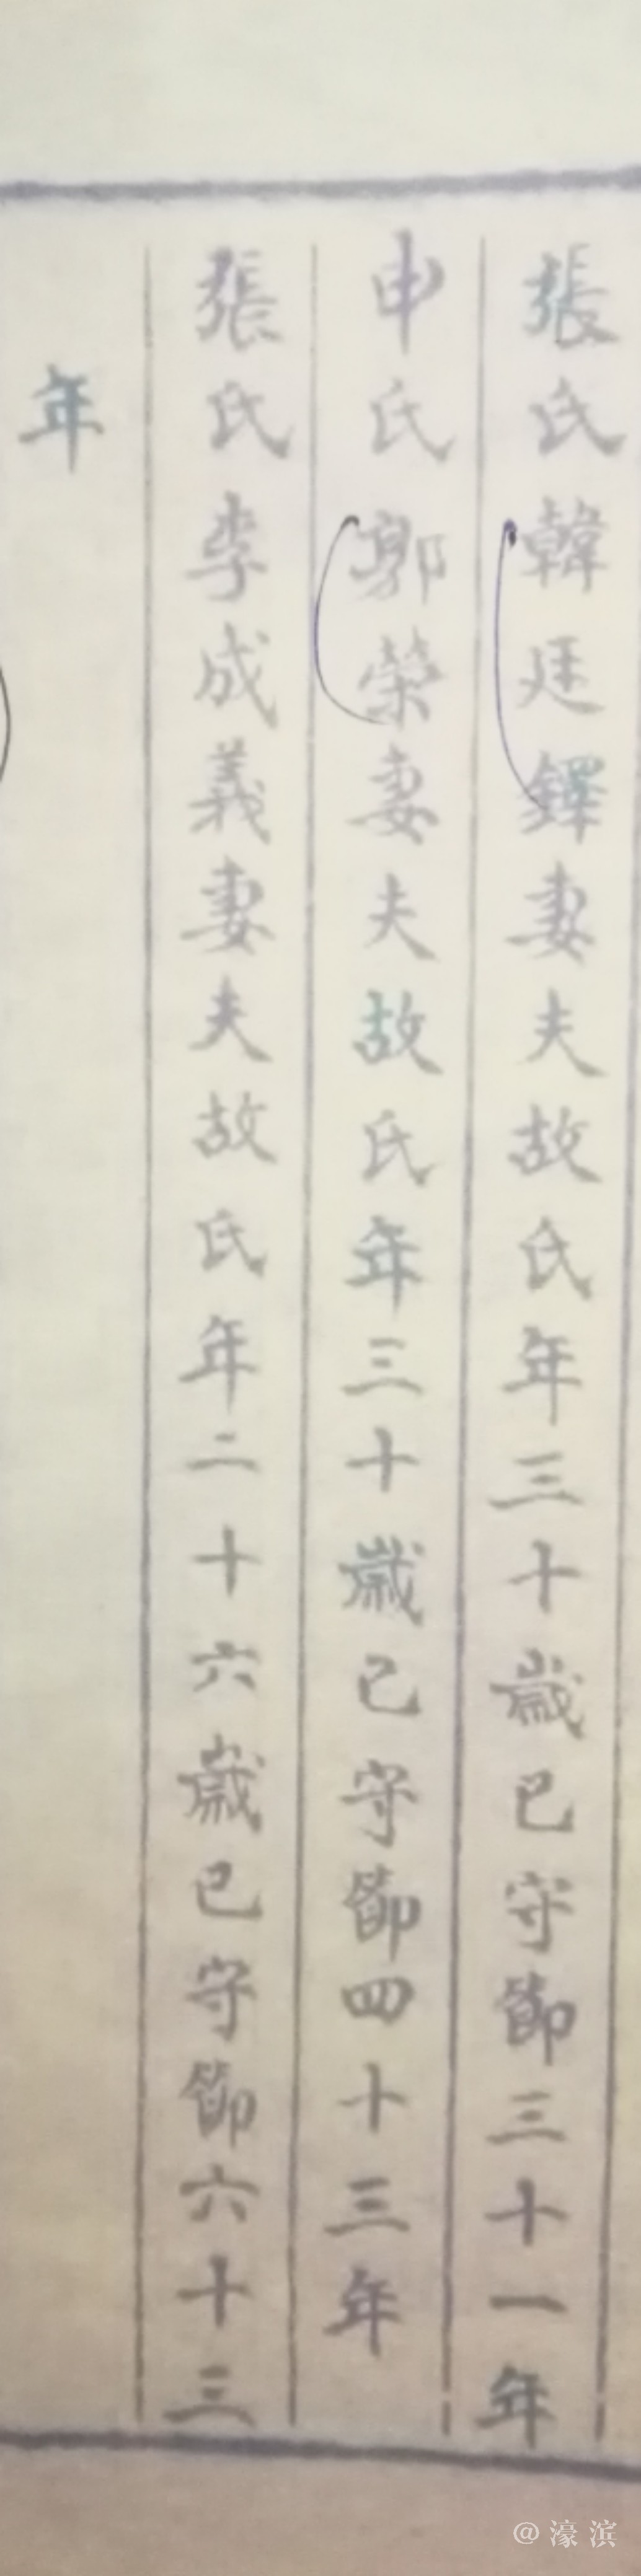 張氏韓廷鐸妻夫故氏年三十歲已守節三十一年
申氏郭榮妻夫故氏年三十歲已守節四十三年
張氏李成義妻夫故氏年二十六歲已守節六十三
年
@濠滨